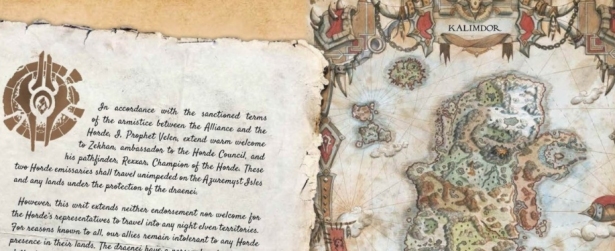 KALIMDOR
In accordance with the sanctioned terms
of the armistice between the Alliance and the
Horde, I, Prophet Velen, extend warm welcome
to Zekhan, ambassador to the Horde Council, and
his pathfinder, Rexxar, Champion of the Horde. These
two Horde emissaries shall travel unimpeded on the Azuremyst Isles
and any lands under the protection of the draenei.
However, this writ extends neither endorsement nor welcome for
the Horde's representatives to travel into any night elven territories.
For reasons known to all, our allies remain intolerant to any Horde
presence in their lands. The draenei have a